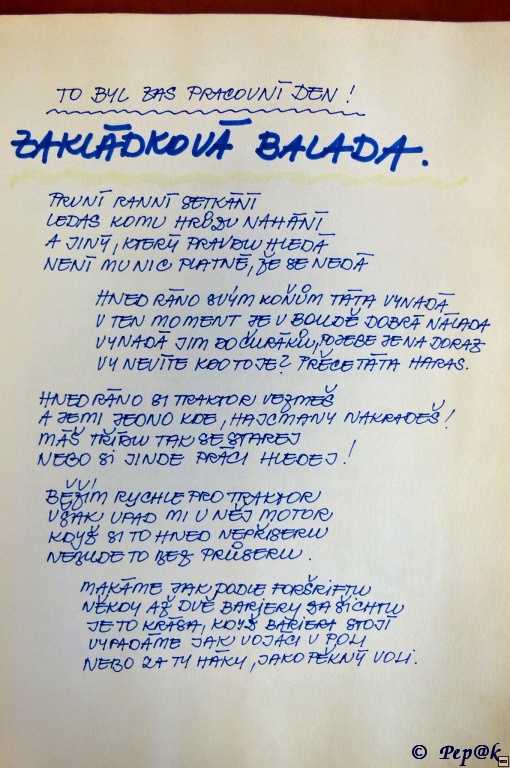 TO BYL ZAS PRACOVNÍ DEN!
ZAKLÁDKOVÁ BALADA.
PRVNÍ RANNÍ SETKÁNÍ
LEDAS KOMU HRŮZU NAHÁNÍ
A JINÝ, KTERÝ PRAVDU HLEDÁ
NENÍ MU NIC PLATNÉ, ŽE SE NEDÁ
HNED RÁNO SVÝM KOŇŮM TÁTA VYNADÁ
V TEN MOMENT JE V BOUDĚ DOBRÁ NÁLADA
VYNADÁ JIM DO ČURÁKŮ, POJEBE JE NA DORAZ
VY NEVÍTE KDO TO JE? PŘECE TÁTA HARAS.
HNED RÁNO SI TRAKTOR VEZMEŠ
A JEMI JEDNO KDE, HAJCMANY NAKRADEŠ!
MÁŠ TŘÍDU TAK SE STAREJ
NEBO SI JINDE PRÁCI HLEDEJ!
BĚŽÍM RYCHLE PRO TRAKTOR
VŠAK UPAD MI U NĚJ MOTOR
KDYŽ SI TO HNED NEPŘISERU
NEBUDE TO BEZ PRŮSERU.
MAKÁME JAK PODLE FORŠRIFTU
NĚKDY AŽ DVĚ BARJERY ZA ŠICHTU
JE TO KRÁSA, KDYŽ BARJERA STOJÍ
VYPADÁME JAK VOJÁCI V POLI
NEBO ZA TY HÁKY, JAKO PĚKNÝ VOLI.
© Pep@k